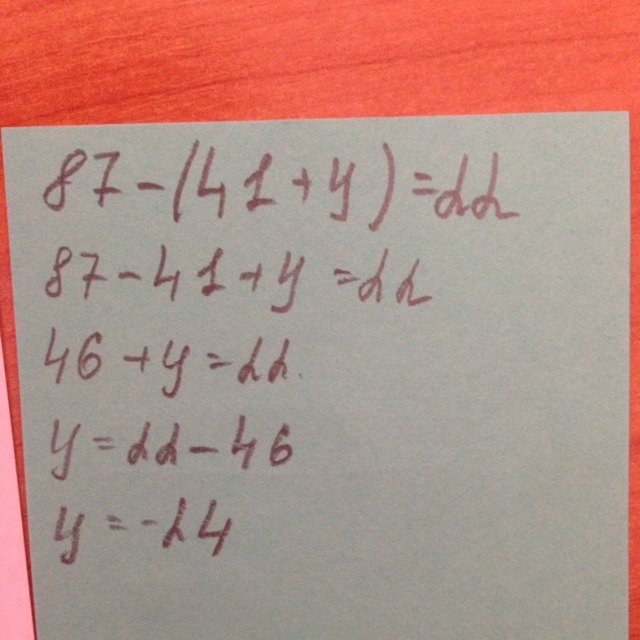 87-(41+y)=22
87-41+y=22
46+y=22.
y=22-46
y=-24